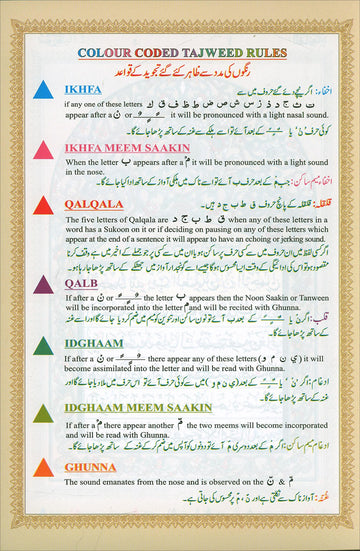 COLOUR CODED TAJWEED RULES
رنگوں کی مدد سے ظاہر کئے گئے تجوید کے قواعد
IKHFA
اخفاء: اگر نیچے دئے گئے حروف میں سے
if any one of these letters ت ث ج د ذ ز س ش ص ض ط ظ ف ق ك
appear after a نْ or ـًـ ـٍـ ـٌـ it will be pronounced with a light nasal sound.
کوئی حرف نْ یا ـًـ ـٍـ ـٌـ کے بعد آئے تو اسے ہلکے غنہ کے ساتھ پڑھا جائے گا۔
IKHFA MEEM SAAKIN
When the letter ب appears after a مْ it will be pronounced with a light sound
in the nose.
اخفاء میم ساکن: جب مْ کے بعد حرف ب آئے تو اسے ناک میں ہلکی آواز کے ساتھ ادا کیا جائے گا۔
QALQALA
قلقلہ: قلقلہ کے پانچ حروف ق ط ب ج د ہیں۔
The five letters of Qalqala are ق ط ب ج د when any of these letters in a
word has a Sukoon on it or if deciding on pausing on any of these letters which
appear at the end of a sentence it will appear to have an echoing or jerking sound.
اگر کسی لفظ میں ان حروف میں سے کسی حرف پر ساکن ہو یا ان میں سے کسی پر جو جملے کے اخیر میں ہے وقف کرنا
مقصود ہو تو اس کی ادائیگی کے وقت ایسا محسوس ہوگا جیسے اسے گونجدار آواز میں جھٹکے کے ساتھ پڑھا جا رہا ہے۔
QALB
If after a نْ or ـًـ ـٍـ ـٌـ the letter ب appears then the Noon Saakin or Tanween
will be incorporated into the letter م and be recited with Ghunna.
قلب: اگر نْ یا ـًـ ـٍـ ـٌـ کے بعد ب آئے تو نون ساکن اور تنوین کو میم میں ضم کر دیا جائے گا اور اسے غنہ
کے ساتھ پڑھا جائے گا۔
IDGHAAM
If after a نْ or ـًـ ـٍـ ـٌـ there appear any of these letters (ي ن م و) it will
become assimilated into the letter and will be read with Ghunna.
ادغام: اگر نْ یا ـًـ ـٍـ ـٌـ کے بعد (ي ن م و) میں سے کوئی حرف آئے تو اس حرف میں ملا دیا جائے گا اور
غنہ کے ساتھ پڑھا جائے گا۔
IDGHAAM MEEM SAAKIN
If after a مْ there appear another م the two meems will become incorporated
and will be read with Ghunna.
ادغام میم ساکن: اگر مْ کے بعد دوسری م آئے تو دونوں کو آپس میں ضم کر کے غنہ کے ساتھ پڑھا جائے گا۔
GHUNNA
The sound emanates from the nose and is observed on the نّ & مّ
غنّہ: آواز ناک سے نکلتی ہے اور نّ ، مّ پر محسوس کی جاتی ہے۔